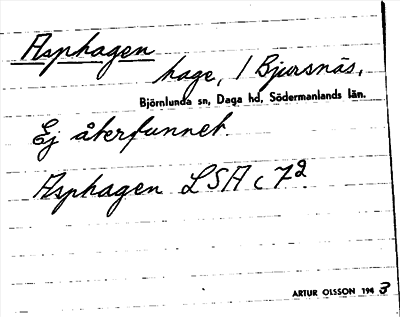 Asphagen
hage, / Bjursnäs,
Björnlunda sn, Daga hd, Södermanlands län.
Ej återfunnet.
Asphagen LSA c 72.
ARTUR OLSSON 1943